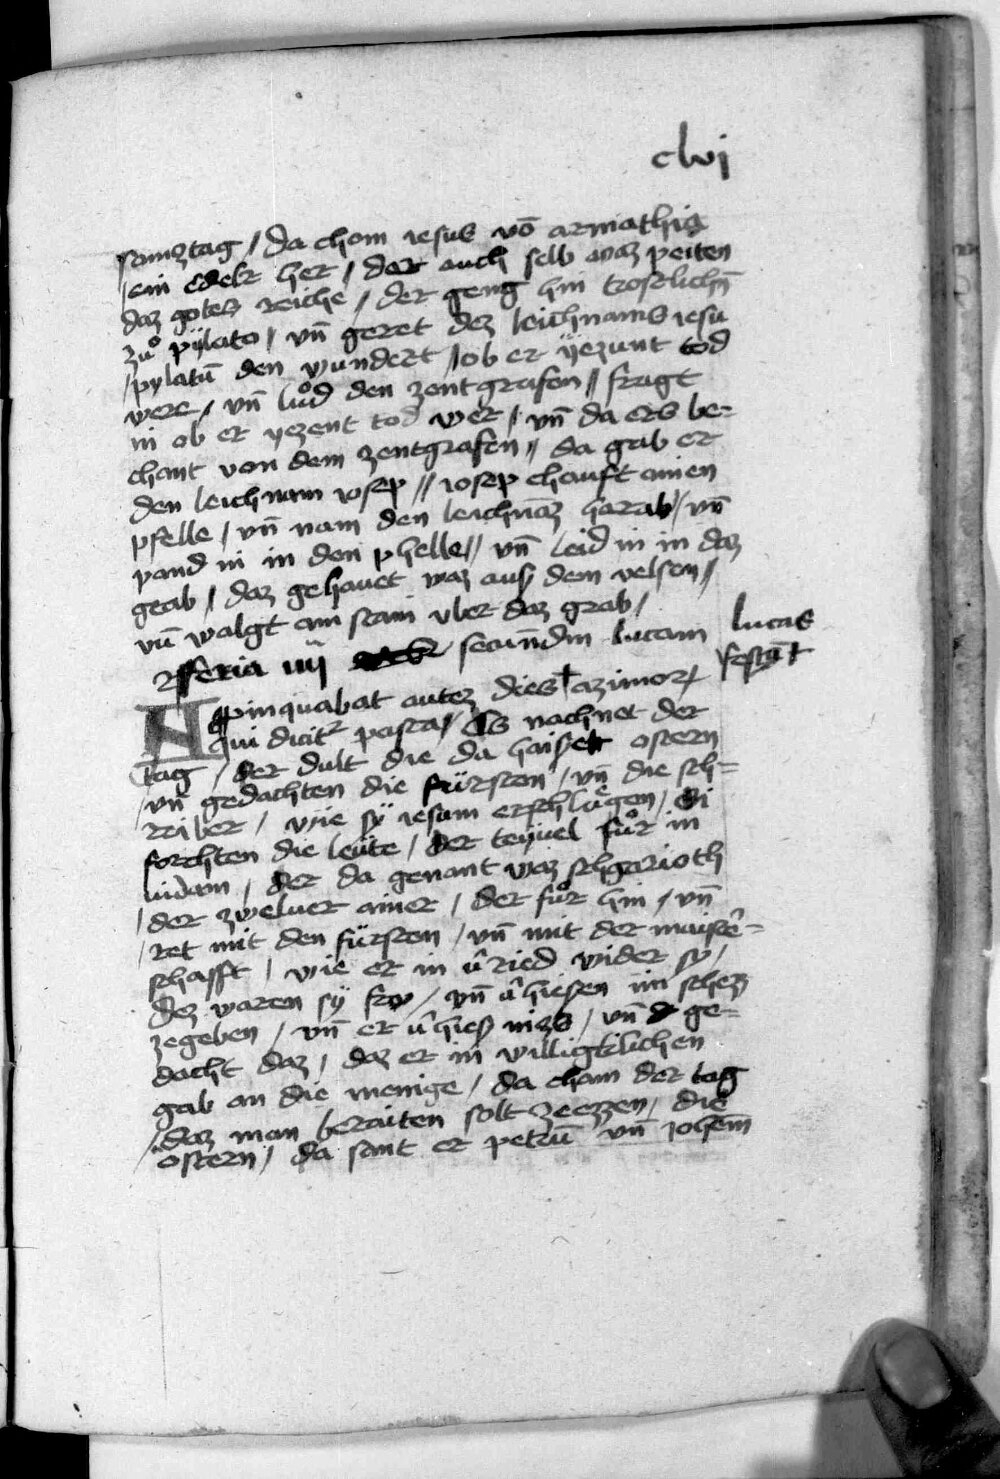 clvj
samztag / da chom iesus vō armathia
/ ein edelr her / der auch selb waz peiten
daz gotes reiche / der geng hin trostlichn̄
zuͦ pÿlato / vn̄ geret dez leichnams iesu
/ pylatū den wundert / ob er ÿezunt tod
were / vn̄ luͦd den zentgrafen // fragt
in ob er yezent tod wer / vn̄ da ers be=
chant von dem zentgrafen // da gab er
den leichnam iosep // iosep chauft ainen
pfelle / vn̄ nam den leichnaz herab / vn̄
pand in in den phelle // vn̄ leid in in daz
grab / daz gehauet waz auß dem velsen //
vn̄ walgt ain stain vber daz grab /
feria iiij secūndm lucam lucas
Apinquabat autez dies † azimorꝝ festū †
qui dicitr pasca / Es nachnet der
tag / der dult die da haisset ostern
/ vn̄ gedachten die fürsten / vn̄ die sch=
reiber / wie sÿ iesum erschluͤgen / Si
forchten die leüte / der teyuel fuͦr in
iudam / der da genant waz schgarioth
/ der zweluer ainer / der fuͦr hin / vn̄
/ ret mit den fürsten / vn̄ mit der maistˀ=
schafft / wie er in vˀried wider sy /
dez waren sÿ fro / vn̄ vˀhiesen im schez
zegeben / vn̄ er vˀhieß nizs / vn̄ ge=
dacht daz / daz er in willigklichen
gab an die menige / da cham der tag
/ daz man beraiten solt zeezzen / die
ostern / da sant er petrū vn̄ iohem̄